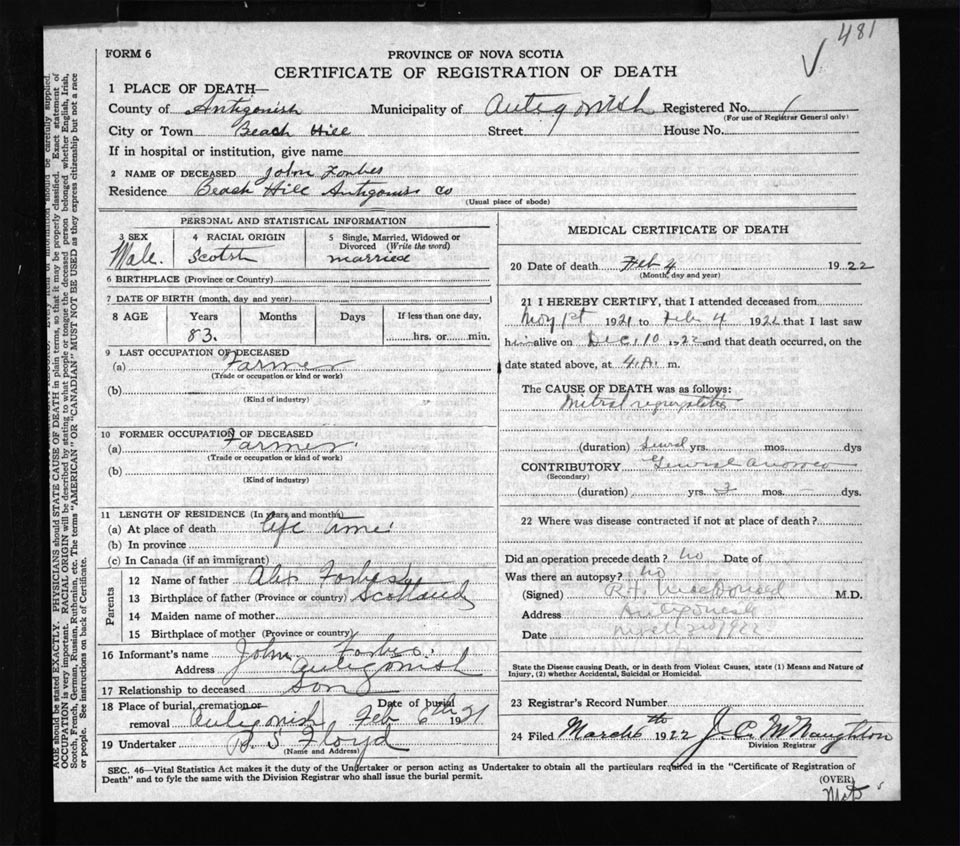 481
FORM 6
PROVINCE OF NOVA SCOTIA
CERTIFICATE OF REGISTRATION OF DEATH
1 PLACE OF DEATH—
County of Antigonish Municipality of Antigonish Registered No. 1
(For use of Registrar General only)
City or Town Beach Hill Street House No.
If in hospital or institution, give name
2 NAME OF DECEASED John Forbes
Residence Beach Hill Antigonish Co
(Usual place of abode)
PERSONAL AND STATISTICAL INFORMATION
3 SEX Male.
4 RACIAL ORIGIN Scotsh
5 Single, Married, Widowed or Divorced (Write the word) married
6 BIRTHPLACE (Province or Country)
7 DATE OF BIRTH (month, day and year)
8 AGE Years Months Days If less than one day,
83. hrs. or min.
9 LAST OCCUPATION OF DECEASED
(a) Farmer
(Trade or occupation or kind or work)
(b)
(Kind of industry)
10 FORMER OCCUPATION OF DECEASED
(a) Farmer
(Trade or occupation or kind of work)
(b)
(Kind of industry)
11 LENGTH OF RESIDENCE (In years and months)
(a) At place of death life time
(b) In province
(c) In Canada (if an immigrant)
Parents
12 Name of father Alex Forbes
13 Birthplace of father (Province or country) Scotland
14 Maiden name of mother
15 Birthplace of mother (Province or country)
16 Informant's name John Forbes
Address Antigonish
17 Relationship to deceased Son
18 Place of burial, cremation or removal Antigonish Date of burial Feb 6th 1921
19 Undertaker B. S. Floyd
(Name and Address)
MEDICAL CERTIFICATE OF DEATH
20 Date of death Feb 4 1922
(Month, day and year)
21 I HEREBY CERTIFY, that I attended deceased from
Nov 1st 1921 to Feb 4 1922 that I last saw
him alive on Dec. 10 1922 and that death occurred, on the
date stated above, at 4 A. m.
The CAUSE OF DEATH was as follows:
Mitral regurgitation
(duration) several yrs. mos. dys
CONTRIBUTORY General
(Secondary)
(duration) yrs. 3 mos. — dys.
22 Where was disease contracted if not at place of death?
Did an operation precede death? no Date of
Was there an autopsy? no
(Signed) R.H. MacDonald M.D.
Address Antigonish
Date 1922
State the Disease causing Death, or in death from Violent Causes, state (1) Means and Nature of
Injury, (2) whether Accidental, Suicidal or Homicidal.
23 Registrar's Record Number
24 Filed March 6th 1922 J. C. McNaughton
Division Registrar
SEC. 46—Vital Statistics Act makes it the duty of the Undertaker or person acting as Undertaker to obtain all the particulars required in the "Certificate of Registration of
Death" and to fyle the same with the Division Registrar who shall issue the burial permit.
(OVER)
AGE should be stated EXACTLY. PHYSICIANS should STATE CAUSE OF DEATH in plain terms, so that it may be properly classified. Exact statement of
OCCUPATION is very important. RACIAL ORIGIN will be described by stating to what people or tongue the deceased person belonged whether English, Irish,
Scotch, French, German, Russian, Ruthenian, etc. The terms "AMERICAN" OR "CANADIAN" MUST NOT BE USED as they express citizenship but not a race
or people. See instructions on back of Certificate.